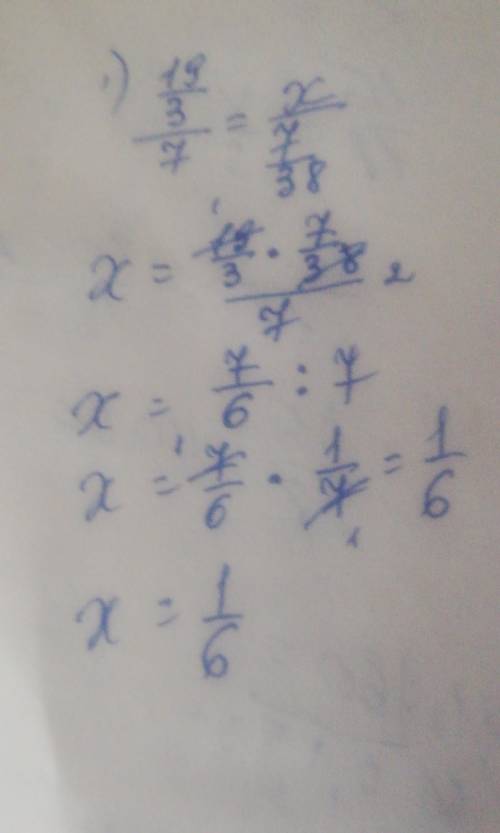 1) 19/3 / 7 = x / 7/38
x = 19/3 · 7/38 / 7
x = 7/6 : 7
x = 7/6 · 1/7 = 1/6
x = 1/6